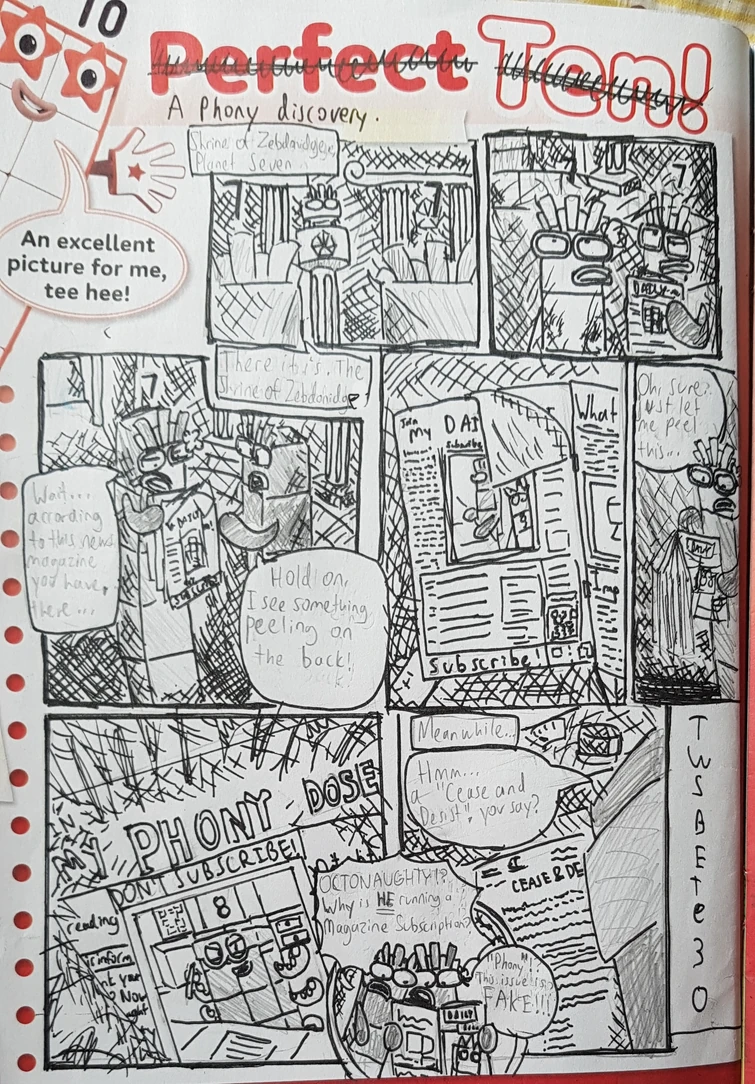 10
Perfect Ten!
A Phony discovery.
An excellent
picture for me,
tee hee!
Shrine of Zebdonidgey,
Planet Seven
7
7
7
There it is. The
Shrine of Zebdonidge
7
Wait...
according
to this news
magazine
you have,
there...
Hold on,
I see something
peeling on
the back!
Join
My
DAI
Subscribe
What
Imp
Subscribe!
Oh, sure?
Just let
me peel
this...
MY PHONY DOSE
DON'T SUBSCRIBE!
reading
8
Meanwhile...
Hmm...
a "Cease and
Desist", you say?
CEASE & DE
OCTONAUGHTY!?
Why is HE running a
Magazine Subscription?
"Phony"!?
This issue is
FAKE!!!
DAILY
TWSAETe30